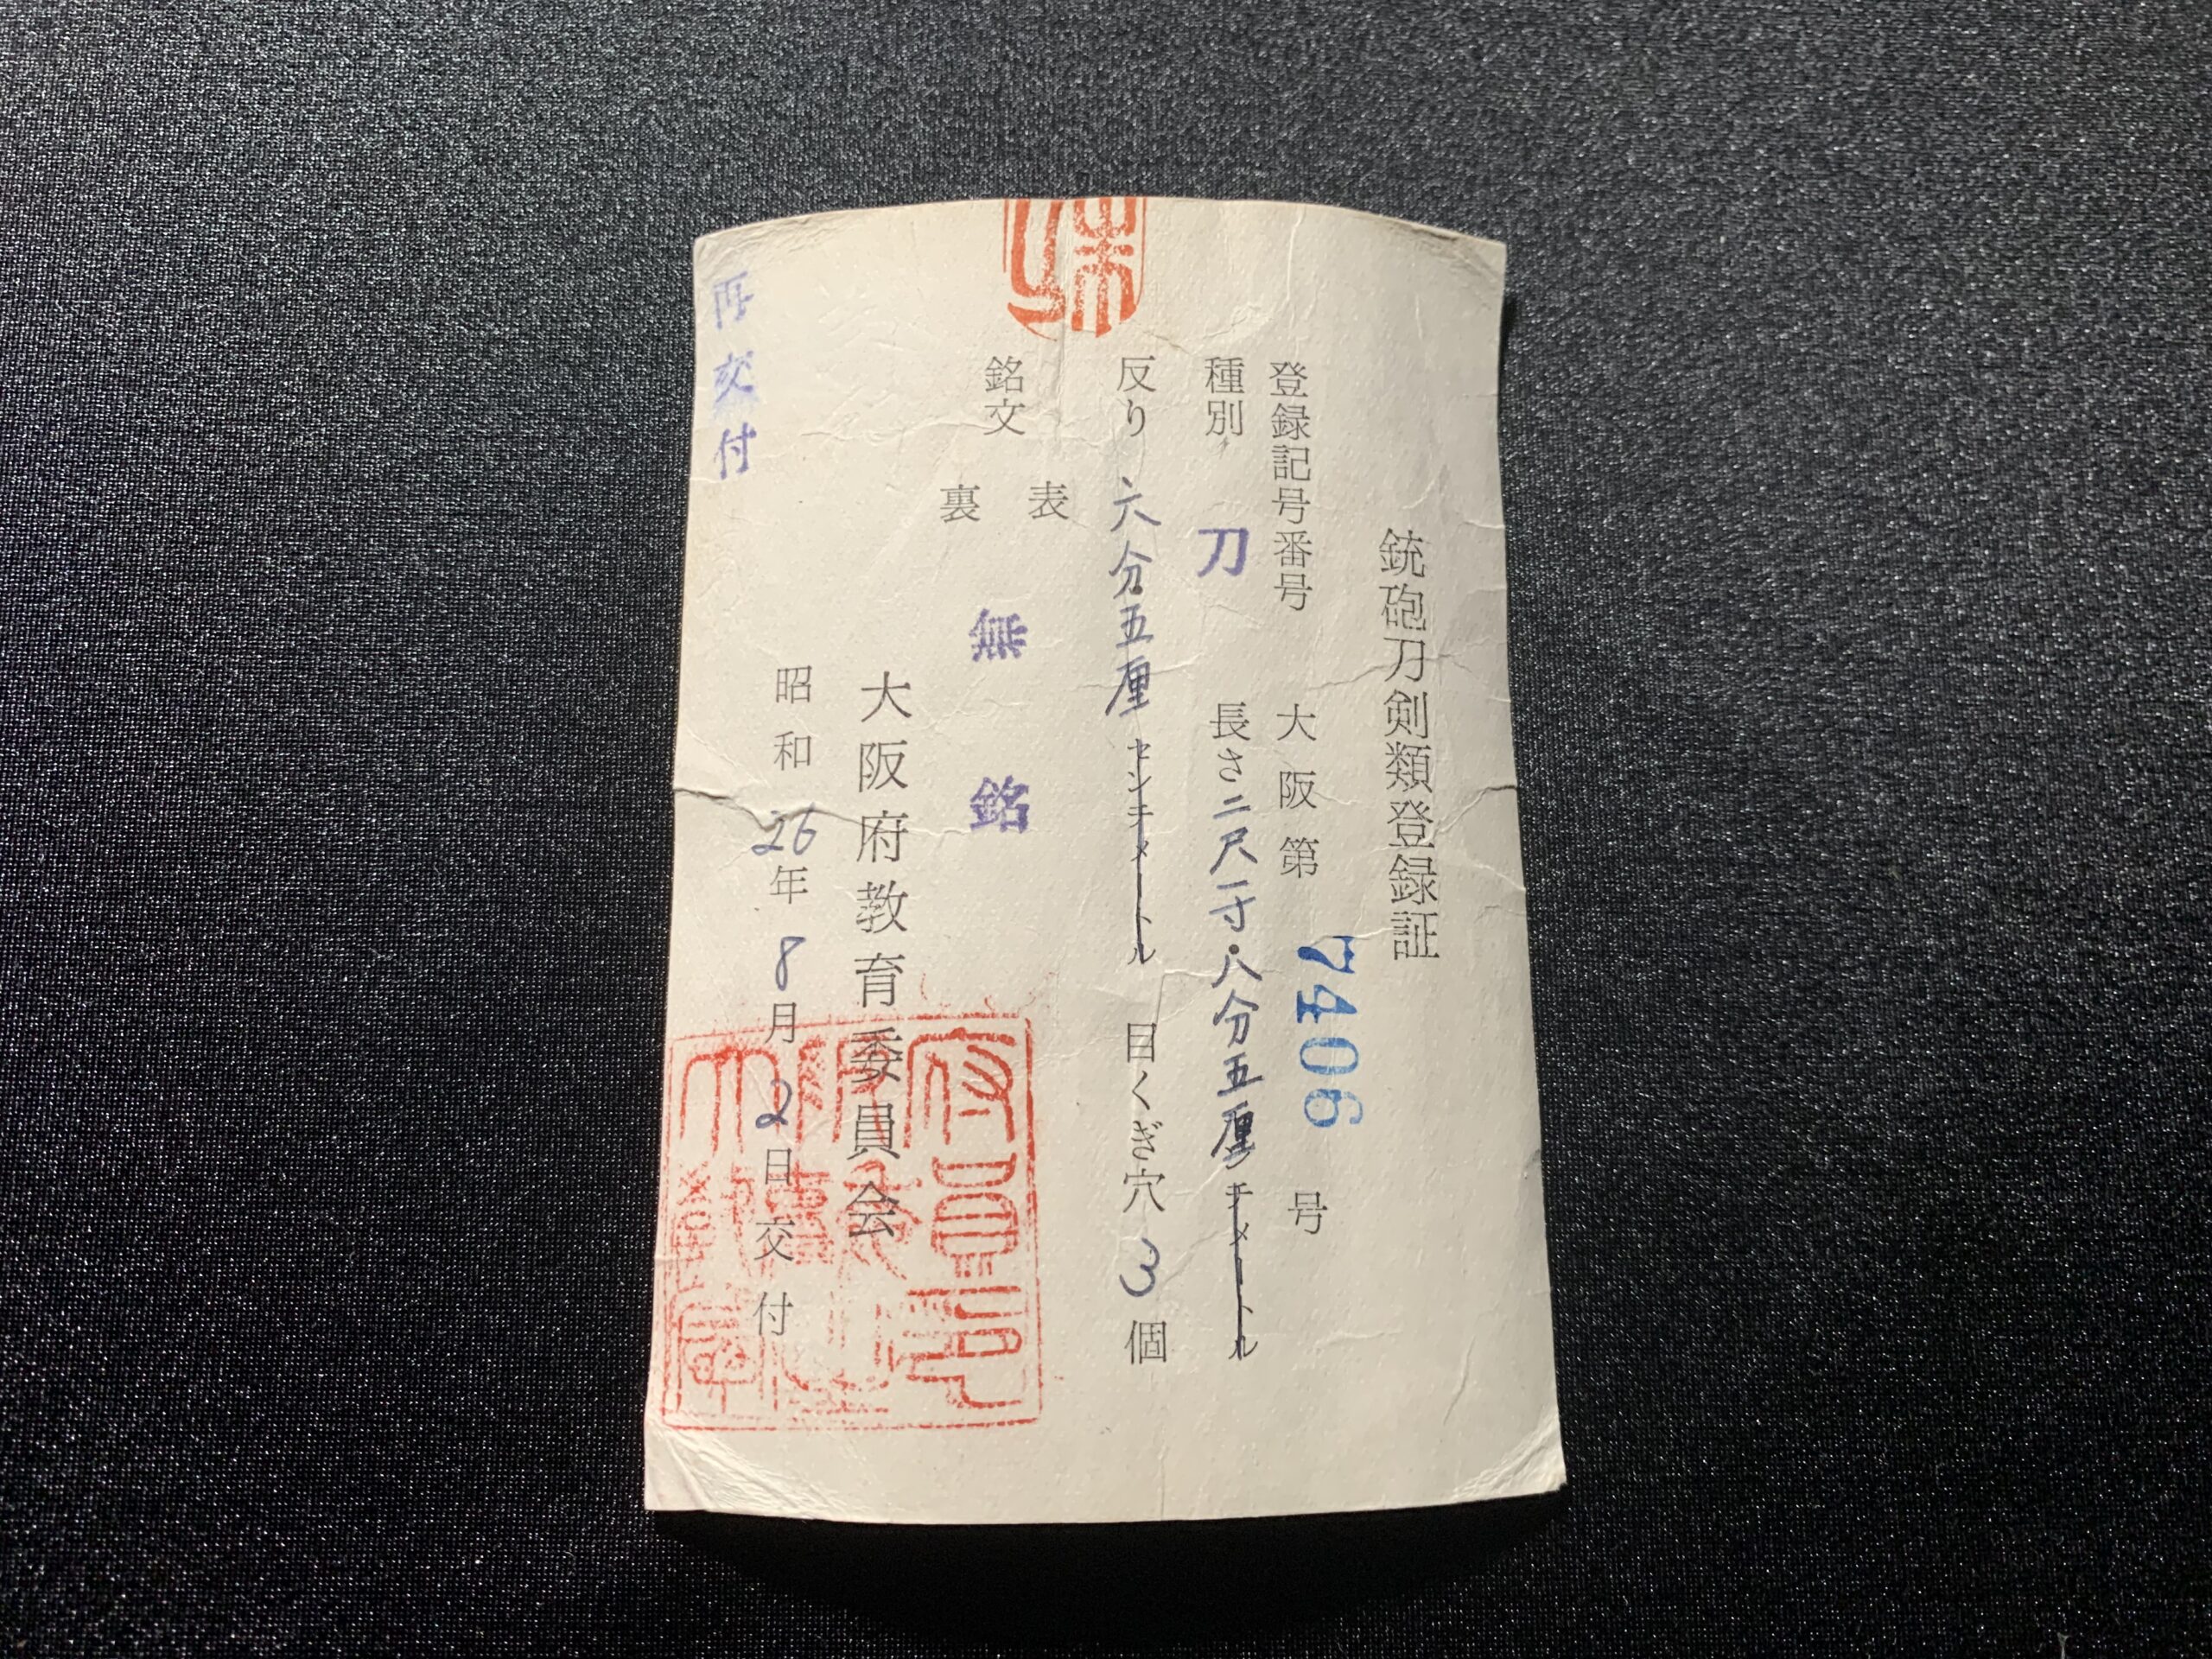 銃砲刀剣類登録証
登録記号番号 大阪第 7406 号
種別 刀 長さ 二尺一寸・八分五厘 チメートル
反り 六分五厘 センチメートル 目くぎ穴 3 個
銘文 表 無銘
裏
大阪府教育委員会
昭和26年8月2日交付
再交付